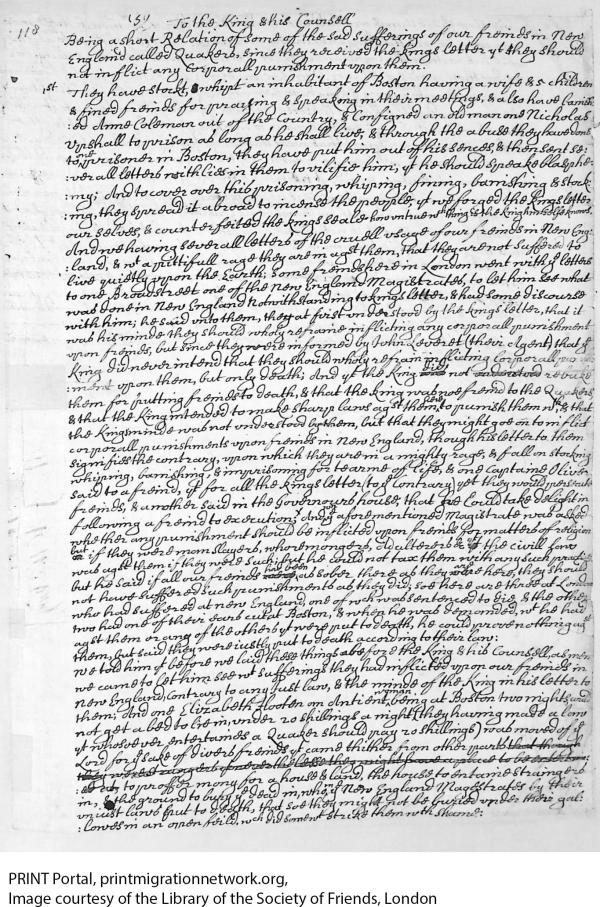 118
(5)
To the King & his Counsell
Being a short Relation of some of the sad sufferings of our freinds in New
England called Quakers, since they received the kings letter yt they should
not inflict any corporall punishment upon them:
1st They have stockt, whipt an inhabitant of Boston having a wife & 5 children
& fined freinds for praying & speaking in their meetings, & also have banish
:ed Anne Coleman out of the Country, & configned an old man one Nicholas
Upshall to prison as long as he shall live; & through the abuse they have done
to one prisoner in Boston, they have put him out of his sences, & then sent se:
:verall letters with lies in them to vilifie him, yt he should speake blasphe:
:my; And to cover over this prisoning, whiping, fining, banishing & stock:
:ing, they spread it abroad to incense the people, yt we forged the kings letter
our selves, & counterfeited the kings seale how untrue wch thing is the King himselfe knows.
And we having severall letters of the cruell usage of our freinds in New Eng:
:land, & wt a pittifull rage they are in agst them, that they are not suffered to
live quietly upon the Earth; some freinds here in London went with ye letters
to one Broadstreet one of the New England Magistrats, to let him see what
was done in New England notwithstanding to kings letter, & had some discourse
with him; he said unto them, they at first understood by the kings letter, that it
was his minde they should wholy refraine inflicting any corporall punishment
upon freinds, but since they were informed by John Leveret (their Agent) that ye
King did never intend that they should wholy refrain inflicting corporall, pu
:ment upon them, but only death; And yt the King did not understood rebuke
them for putting freinds to death, & that the King was noe freind to the Quakers
& that the King intended to make sharp laws agst them, to punish them wth, & that
the Kings minde was not understood by them, but that they might goe on to inflict
corporall punishments upon freinds in New England, though his letter to them
signifies the contrary, upon which they are in a mighty rage, & fall on stocking
whiping, banishing & imprisoning for tearme of life, & one Captaine Oliver
said to a freind, yt for all the kings letter (to ye Contrary) yet they would persecute
freinds, & another said in the Governours house, that he Could take delight in
following a freind to execution; And ye aforementioned Magistrate was asked
whether any punishment should be inflicted upon freinds for matters of religion
but if they were manslayers, whoremongers, adulterers &c ye civill law
was agst them if they were such, but he could not tax them with any such practice
but he said if all our freinds had been as sober there as they were here, they should
not have suffered such punishments as they did; soe here are three at London
who had suffered at new England, one of wch was sentenced to die, & the other
two had one of their ears cut at Boston, & when he was demanded, wt he had
agst them or any of the others yt were put to death, he could prove nothing agst
them, but said they were justly put to death according to their law:
we told him yt before we laid these things before the King & his Counsell, as men
we came to let him see wt sufferings they had inflicted upon our freinds in
New England, Contrary to any just law, & the minde of the King in his letter to
them; And one Elizabeth Hooten an Antient woman, being at Boston two nights, could
not get a bed to lie in, under 20 shillings a night (they having made a law
yt whosoever entertaines a Quaker should pay 20 shillings) was moved of ye
Lord for ye sake of divers freinds yt came thither from other parts that though
they were strangers
to proffer mony for a house & land, the house to entaine strangers
in, & the ground to bury ye dead in, who ye New England Magestrates by their
unjust laws put to death, that soe they might not be buried under their gal:
:lowes in an open feild, wch did somewt strike them with shame:
PRINT Portal, printmigrationnetwork.org,
Image courtesy of the Library of the Society of Friends, London